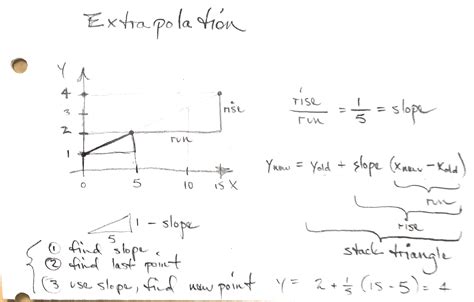 Extrapolation
Y
4
3
2
1
0 5 10 15 X
rise
run
rise/run = 1/5 = slope
Ynew = Yold + slope (Xnew - Xold)
run
rise
stack triangle
1 - slope
5
① find slope
② find last point
③ use slope, find new point Y = 2 + 1/5 (15 - 5) = 4